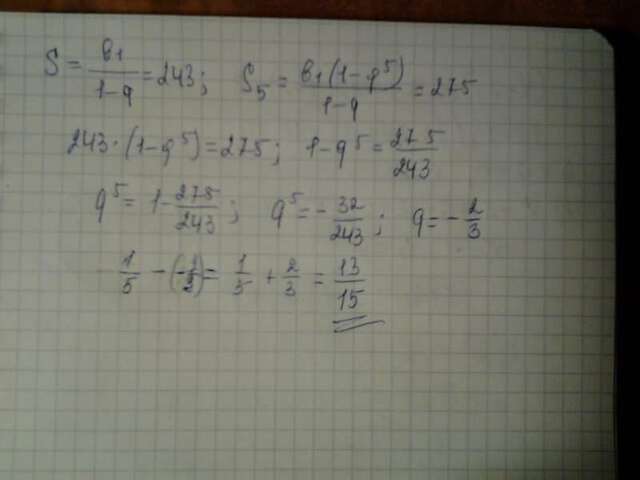 S = в₁/(1-q) = 243; S₅ = в₁(1-q⁵)/(1-q) = 275
243·(1-q⁵) = 275; 1-q⁵ = 275/243
q⁵ = 1-275/243; q⁵ = -32/243; q = -2/3
1/5 - (-1/2) = 1/5 + 2/3 = 13/15